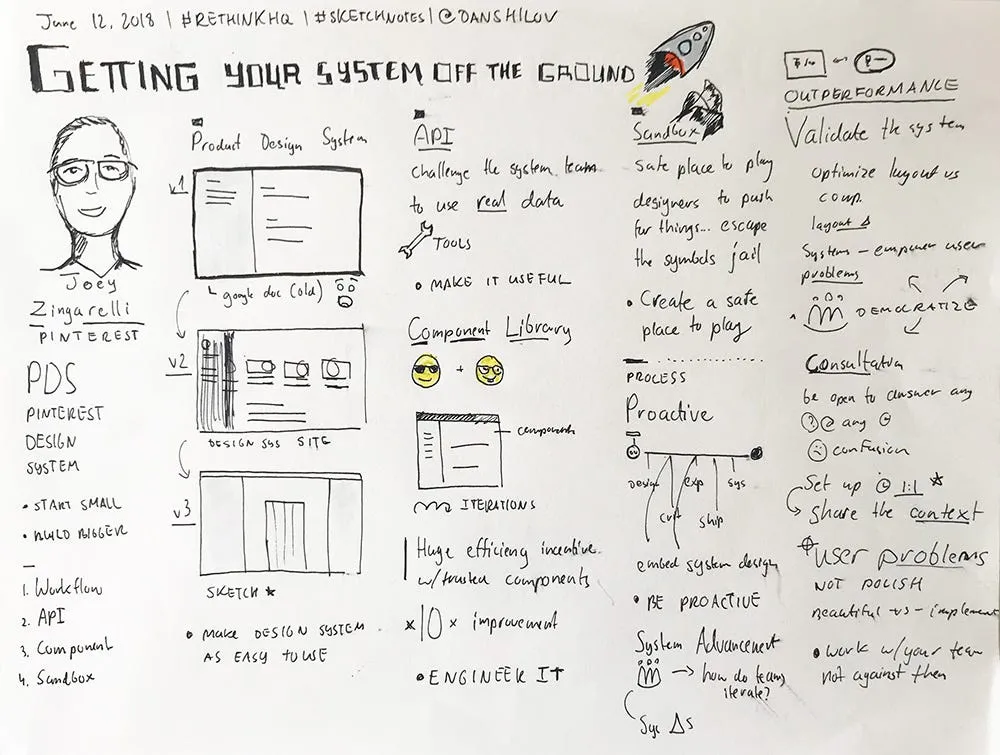 June 12, 2018 | #RETHINKHQ | #SKETCHNOTES | @DANSHILOV
GETTING YOUR SYSTEM OFF THE GROUND
Joey
Zingarelli
PINTEREST
PDS
PINTEREST
DESIGN
SYSTEM
• START SMALL
• BUILD BIGGER
1. Workflow
2. API
3. Component
4. Sandbox
Product Design System
v1
google doc (old)
v2
DESIGN SYS SITE
v3
SKETCH
• MAKE DESIGN SYSTEM
AS EASY TO USE
API
challenge the system team
to use real data
TOOLS
• MAKE IT USEFUL
Component Library
+
components
ITERATIONS
Huge efficiency incentive
w/trusted components
10x improvement
• ENGINEER IT
Sandbox
safe place to play
designers to push
for things... escape
the symbols jail
• Create a safe
place to play
PROCESS
Proactive
Design
exp
sys
ship
embed system design
• BE PROACTIVE
System Advancement
how do teams
iterate?
Sys Δs
OUTPERFORMANCE
Validate the system
Optimize layout vs
comp.
layout Δ
System – empower user
problems
DEMOCRATIZE
Consultation
be open to answer any
any
confusion
Set up 1:1
Share the context
User problems
NOT POLISH
Beautiful vs - implement
• Work w/your team
not against them